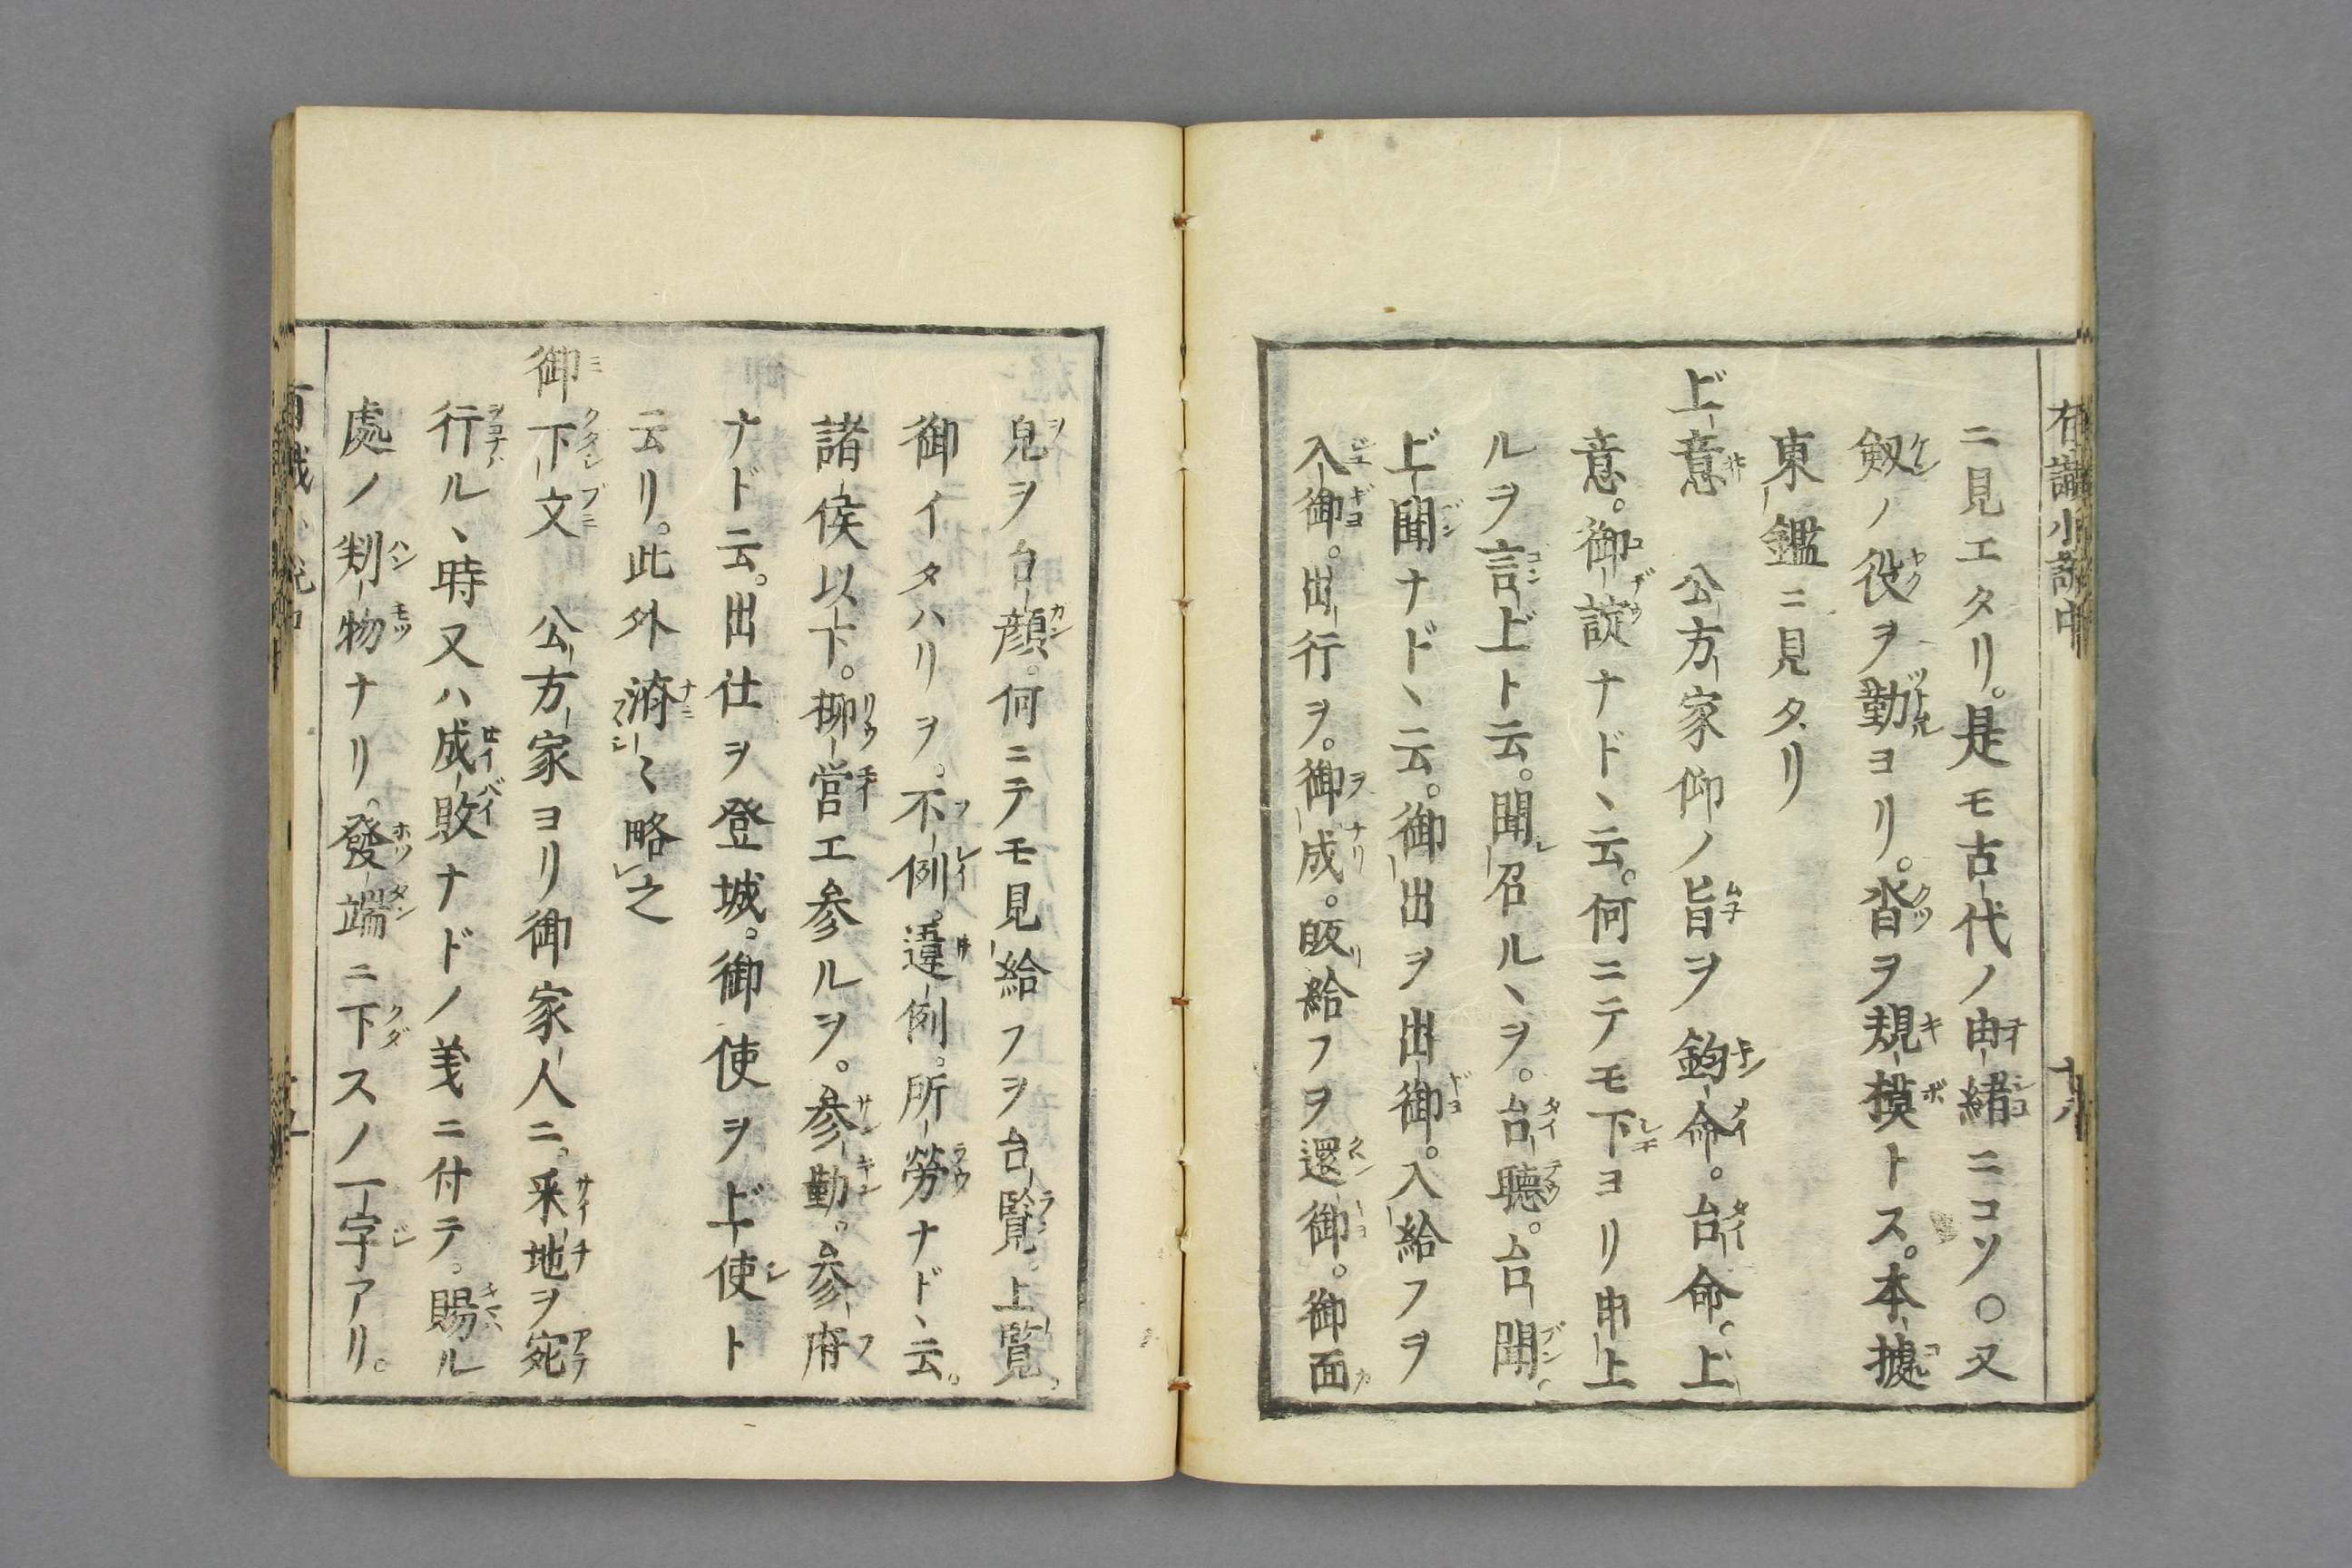 有識小説中
十八
ニ見エタリ。是モ古代ノ由緒ニコソ。○又
劔ノ役ヲ勤ヨリ。沓ヲ規模トス。本據
東鑑ニ見タリ
上意　公方家仰ノ旨ヲ鈞命。台命。上
意。御諚ナドヽ云。何ニテモ下ヨリ申上
ルヲ言上ト云。聞召ルヽヲ。台聴。台聞。
上聞ナドヽ云。御出ヲ出御。入給フヲ
入御。出行ヲ。御成。皈給フヲ還御。御面
皃ヲ台顔。何ニテモ見給フヲ台覧。上覧。
御イタハリヲ。不例。違例。所勞ナドヽ云。
諸侯以下。柳営エ参ルヲ。参勤。参府
ナド云。出仕ヲ登城。御使ヲ上使ト
云リ。此外済〻略之
御下文　公方家ヨリ御家人ニ。采地ヲ宛
行ルヽ時又ハ成敗ナドノ義ニ付テ。賜ル
處ノ判物ナリ。發端ニ下スノ一字アリ。